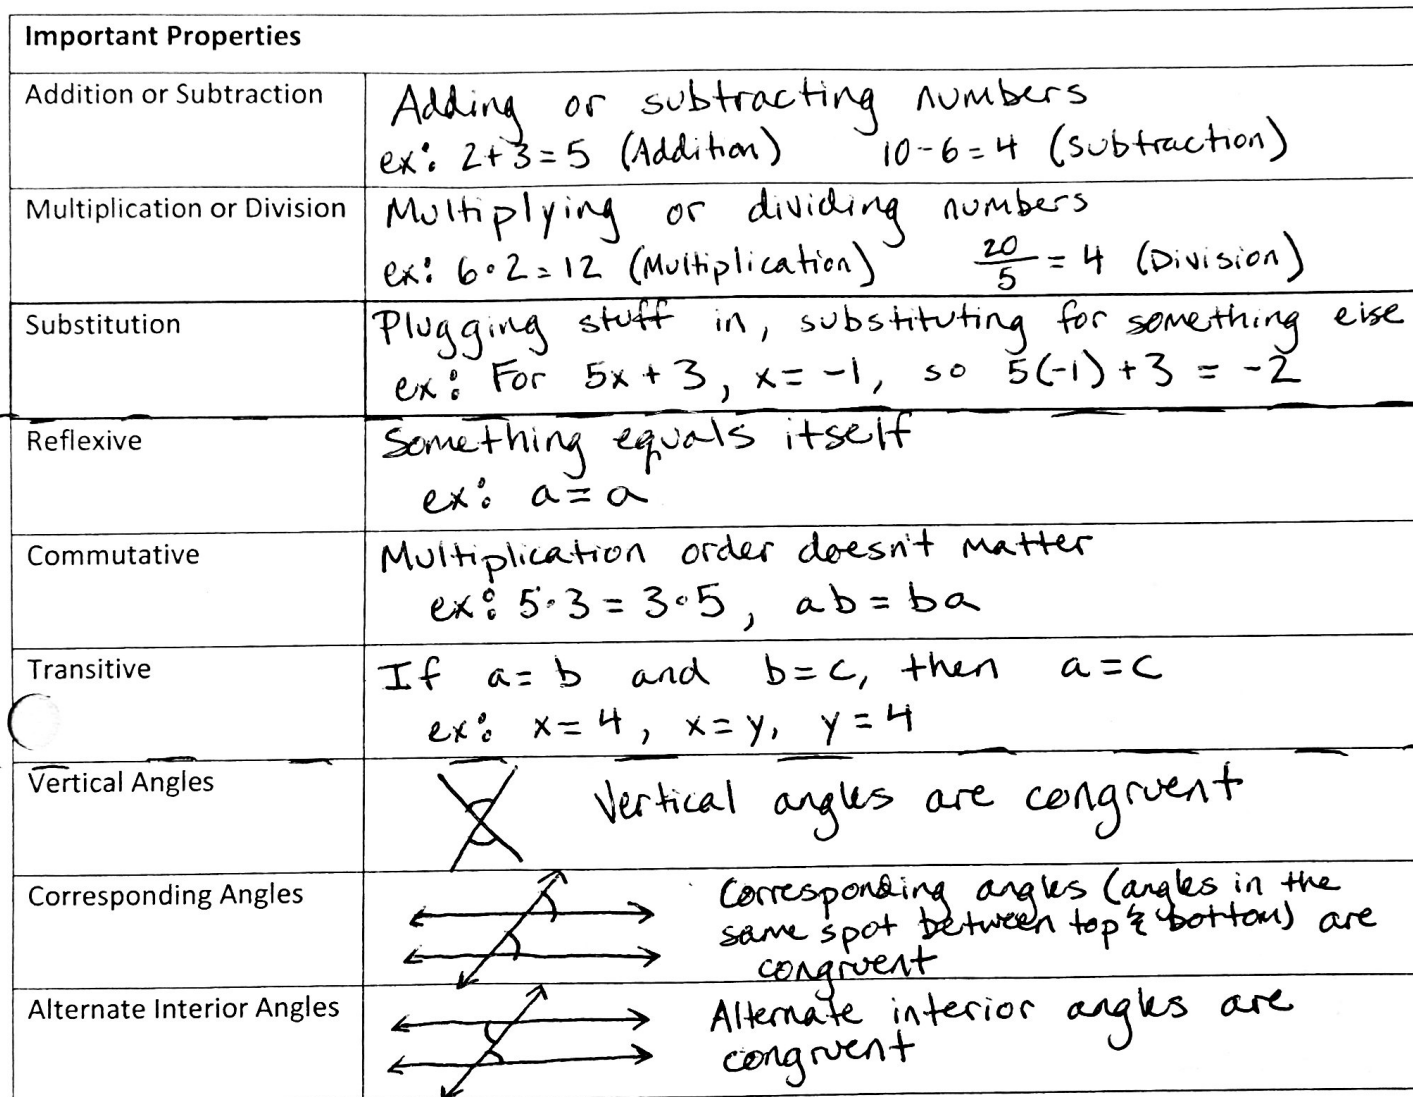 Important Properties
Addition or Subtraction
Adding or subtracting numbers
ex: 2+3=5 (Addition) 10-6=4 (Subtraction)
Multiplication or Division
Multiplying or dividing numbers
ex: 6·2=12 (Multiplication) 20/5 = 4 (Division)
Substitution
Plugging stuff in, substituting for something else
ex: For 5x+3, x=-1, so 5(-1)+3 = -2
Reflexive
Something equals itself
ex: a=a
Commutative
Multiplication order doesn't matter
ex: 5·3=3·5, ab=ba
Transitive
If a=b and b=c, then a=c
ex: x=4, x=y, y=4
Vertical Angles
Vertical angles are congruent
Corresponding Angles
Corresponding angles (angles in the
same spot between top & bottom) are
congruent
Alternate Interior Angles
Alternate interior angles are
congruent